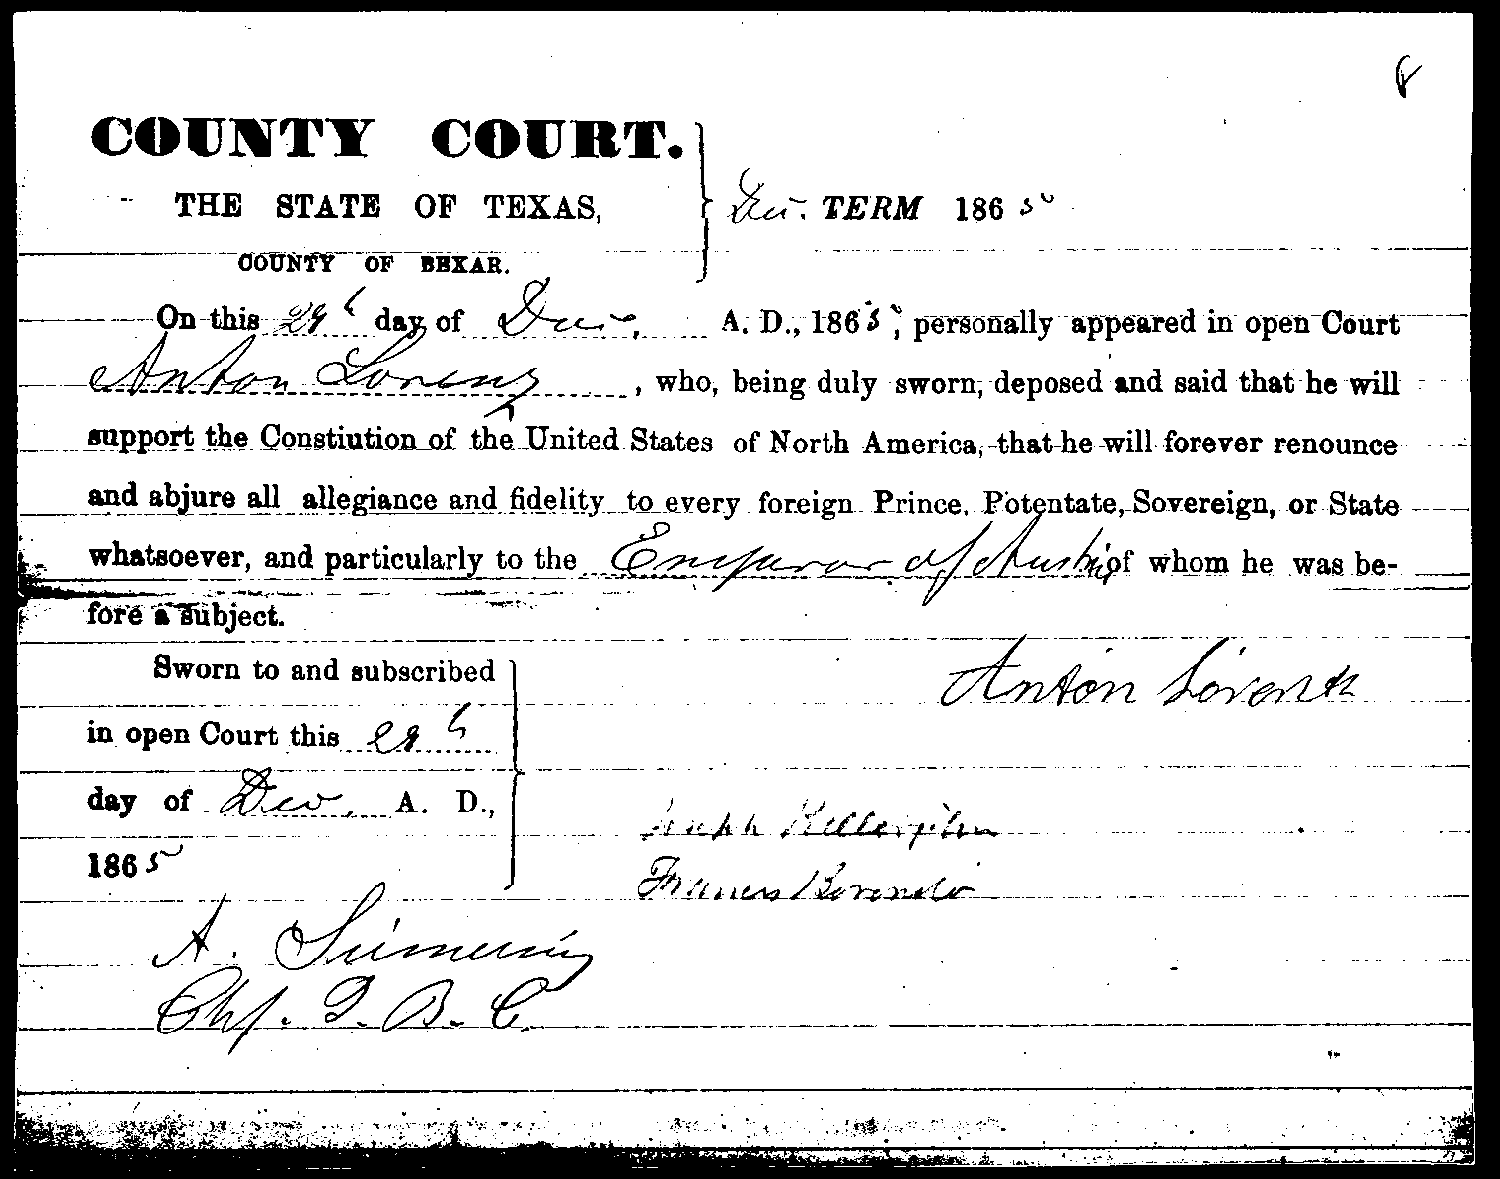 8
COUNTY COURT.
THE STATE OF TEXAS,
Dec. TERM 1865
COUNTY OF BEXAR.
On this 29th day of Dec. A. D., 1865, personally appeared in open Court
Anton Lorenz, who, being duly sworn, deposed and said that he will
support the Constiution of the United States of North America, that he will forever renounce
and abjure all allegiance and fidelity to every foreign Prince, Potentate, Sovereign, or State
whatsoever, and particularly to the Emperor of Austria of whom he was be-
fore a subject.
Sworn to and subscribed
Anton Lorenz
in open Court this 29th
day of Dec. A. D.,
1865
Joseph
Francis
A. Siemering
Chf. J. B. C.